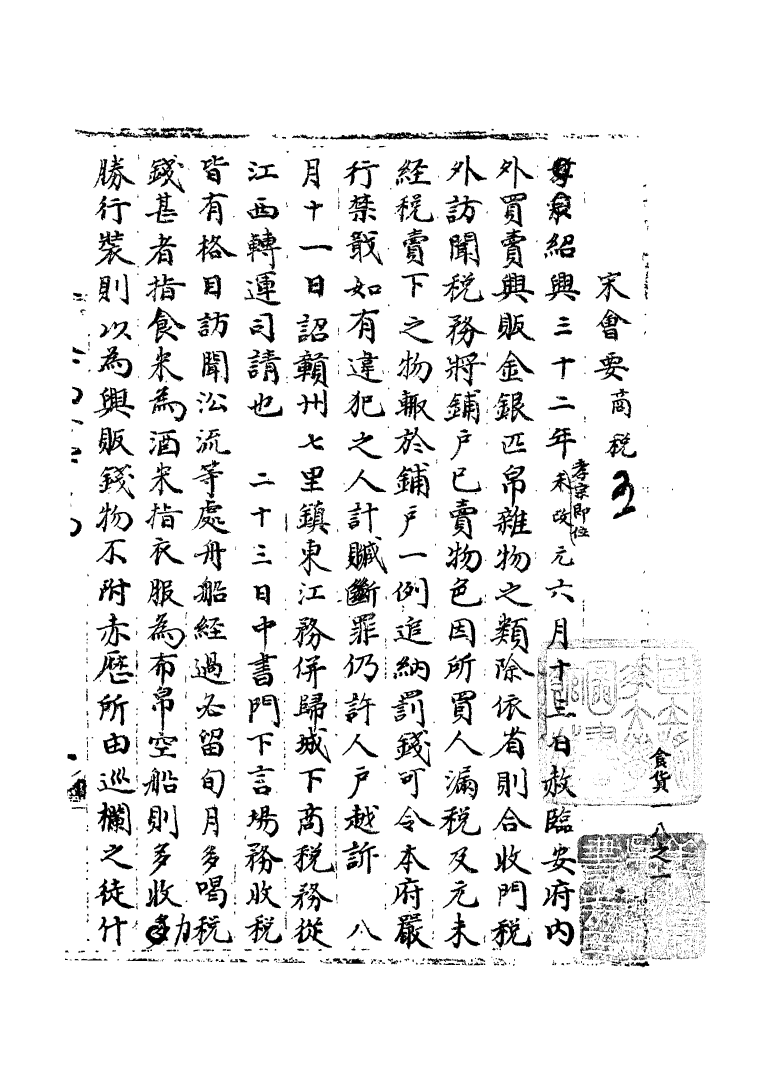 食貨一八之一
宋會要 商稅 五
孝宗紹興三十二年孝宗即位未改元六月十三日赦臨安府內
外買賣興販金銀匹帛雜物之類除依省則合收門稅
外訪聞稅務將鋪戶已賣物色因所買人漏稅及元未
經稅賣下之物輒於鋪戶一例追納罰錢可令本府嚴
行禁戢如有違犯之人計贓斷罪仍許人戶越訴 八
月十一日詔贛州七里鎮東江務併歸城下商稅務從
江西轉運司請也 二十三日中書門下言場務收稅
皆有格目訪聞沿流等處舟船經過必留旬月多喝稅
錢甚者指食米為酒米指衣服為布帛空船則多收力
勝行裝則以為興販錢物不附赤歷所由巡欄之徒什